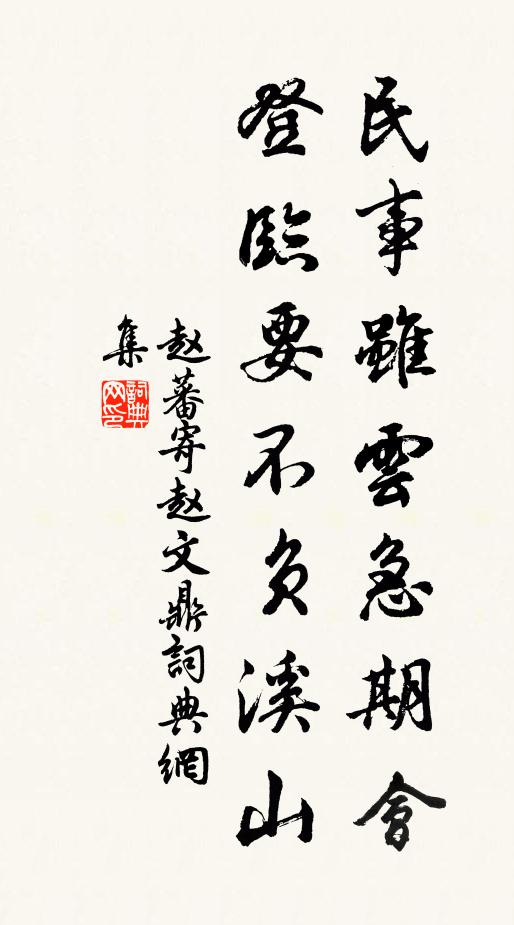 民事雖雲急期會
登臨要不负溪山
赵蕃寄赵文鼎詞典網
集
詞典網印